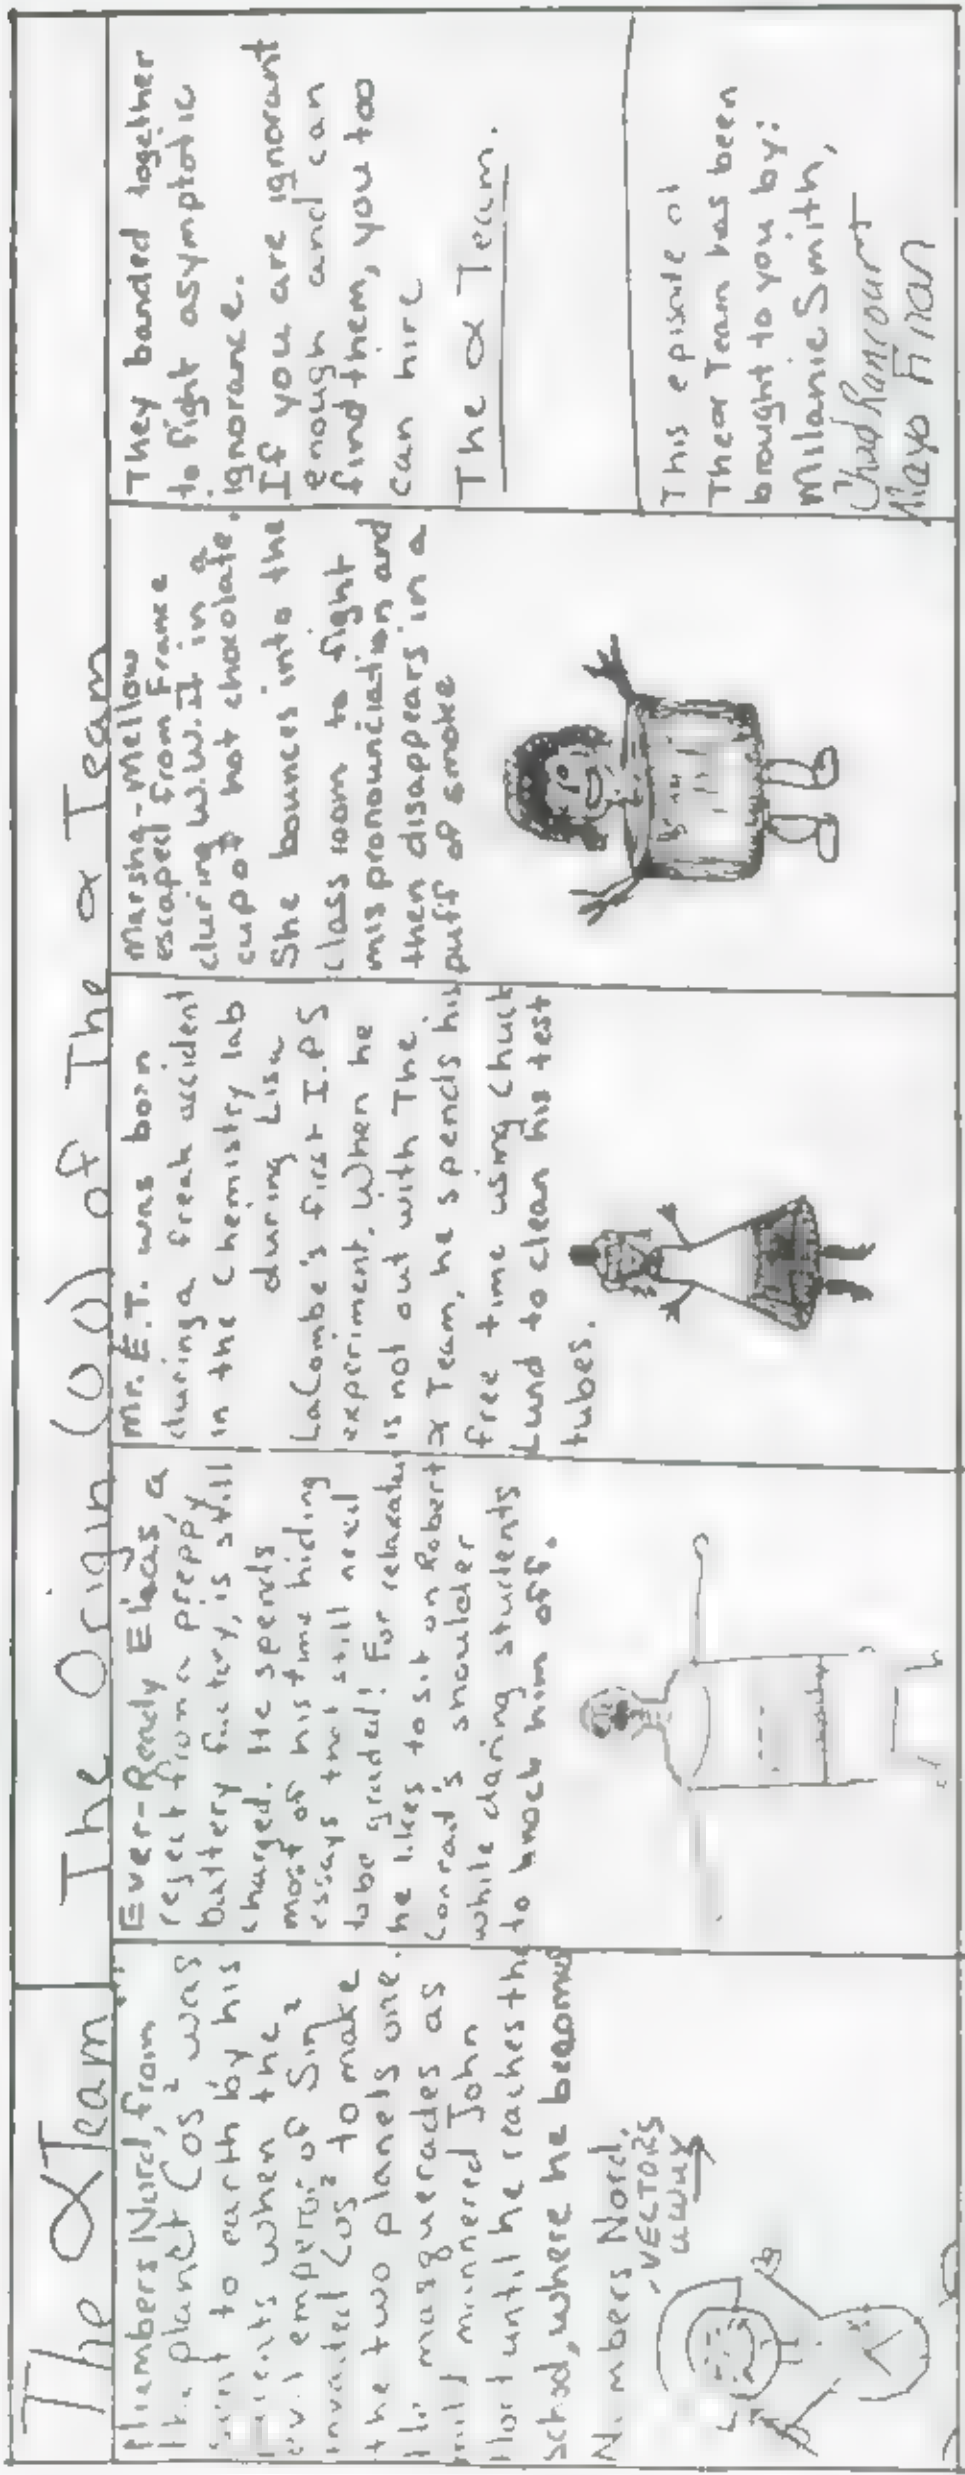 The α Team
The Origin (υ) of The α Team
Numbers Nord, from
the planet Cos² was
sent to earth by his
parents when the
evil emperor of Sin²
invaded Cos² to make
the two planets one.
He masquerades as
mild mannered John
Hort until he reaches the
school, where he becomes
Numbers Nord.
VECTORS
away
Ever-Ready Elias, a
reject from a preppy
battery factory, is still
charged. He spends
most of his time hiding
essays that still need
to be graded! For relaxation
he likes to sit on Robert
Conrad's shoulder
while daring students
to knock him off.
Mr. E.T. was born
during a freak accident
in the chemistry lab
during Lisa
LaCombe's first I.P.S
experiment. When he
is not out with The
α Team, he spends his
free time using Chuck
Lund to clean his test
tubes.
Marsha-Mellow
escaped from France
during W.W.II in a
cup of hot chocolate.
She bounces into the
class room to fight
mispronounciation and
then disappears in a
puff of smoke
They banded together
to fight asymptotic
ignorance.
If you are ignorant
enough and can
find them, you too
can hire
The α Team.
This episode of
The α Team has been
brought to you by:
Milanie Smith,
Chad Rancourt
Mayo Finan